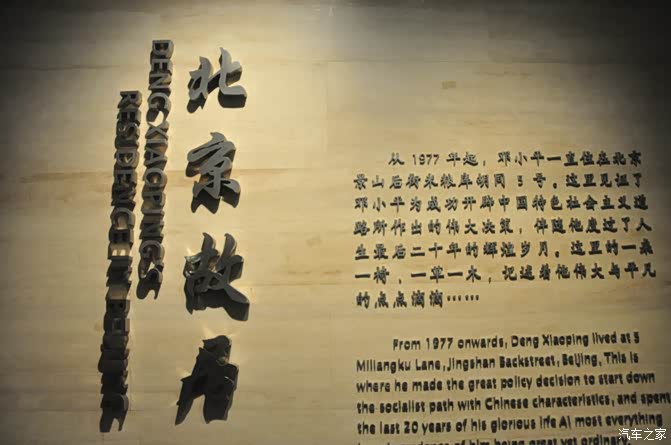 北京故居
DENG XIAOPING'S
RESIDENCE IN
从1977年起，邓小平一直住在北京
景山后街米粮库胡同5号。这里见证了
邓小平为成功开辟中国特色社会主义道
路所作出的伟大决策，伴随他度过了人
生最后二十年的辉煌岁月。这里的一桌
一椅、一草一木，记述着他伟大与平凡
的点点滴滴……
From 1977 onwards, Deng Xiaoping lived at 5
Miliangku Lane, Jingshan Backstreet, Beijing, This is
where he made the great policy decision to start down
the socialist path with Chinese characteristics, and spent
the last 20 years of his glorious life Al most everything
汽车之家